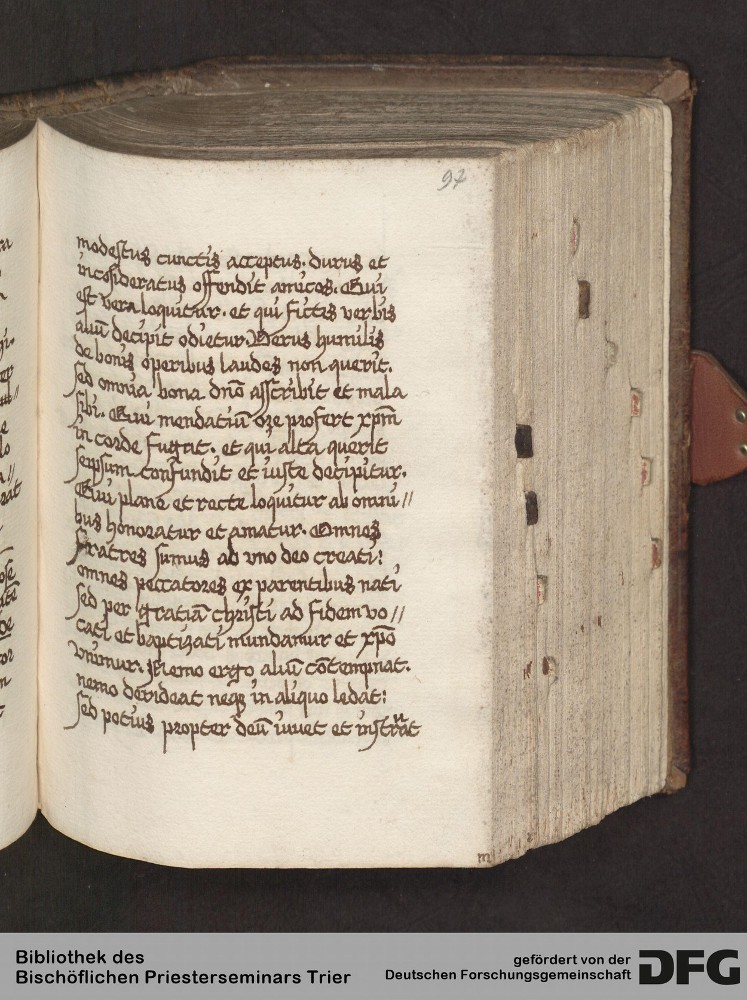 97
modestus cunctis acceptus. durus et
incōsideratus offendit amicos. Qui
est vera loquitur. et qui fictis verbis
aliū decipit odietur. Verus humilis
de bonis operibus laudes non querit.
sed omnia bona dn̄o asscribit et mala
sibi. Qui mendatiū ore profert xp̄m
in corde fugat. et qui alta querit
seipsum confundit et iuste decipitur.
Qui plane et recte loquitur ab omni//
bus honoratur et amatur. Omnes
fratres sumus ab vno deo creati:
omnes peccatores ex parentibus nati
sed per gratiā christi ad fidem vo//
cati et baptizati mundamur et xp̄o
vnimur. Nemo ergo aliū cōtempnat.
nemo derideat neqꝫ in aliquo ledat:
sed potius propter deū iuuet et
m
Bibliothek des
Bischöflichen Priesterseminars Trier
gefördert von der
Deutschen Forschungsgemeinschaft
DFG